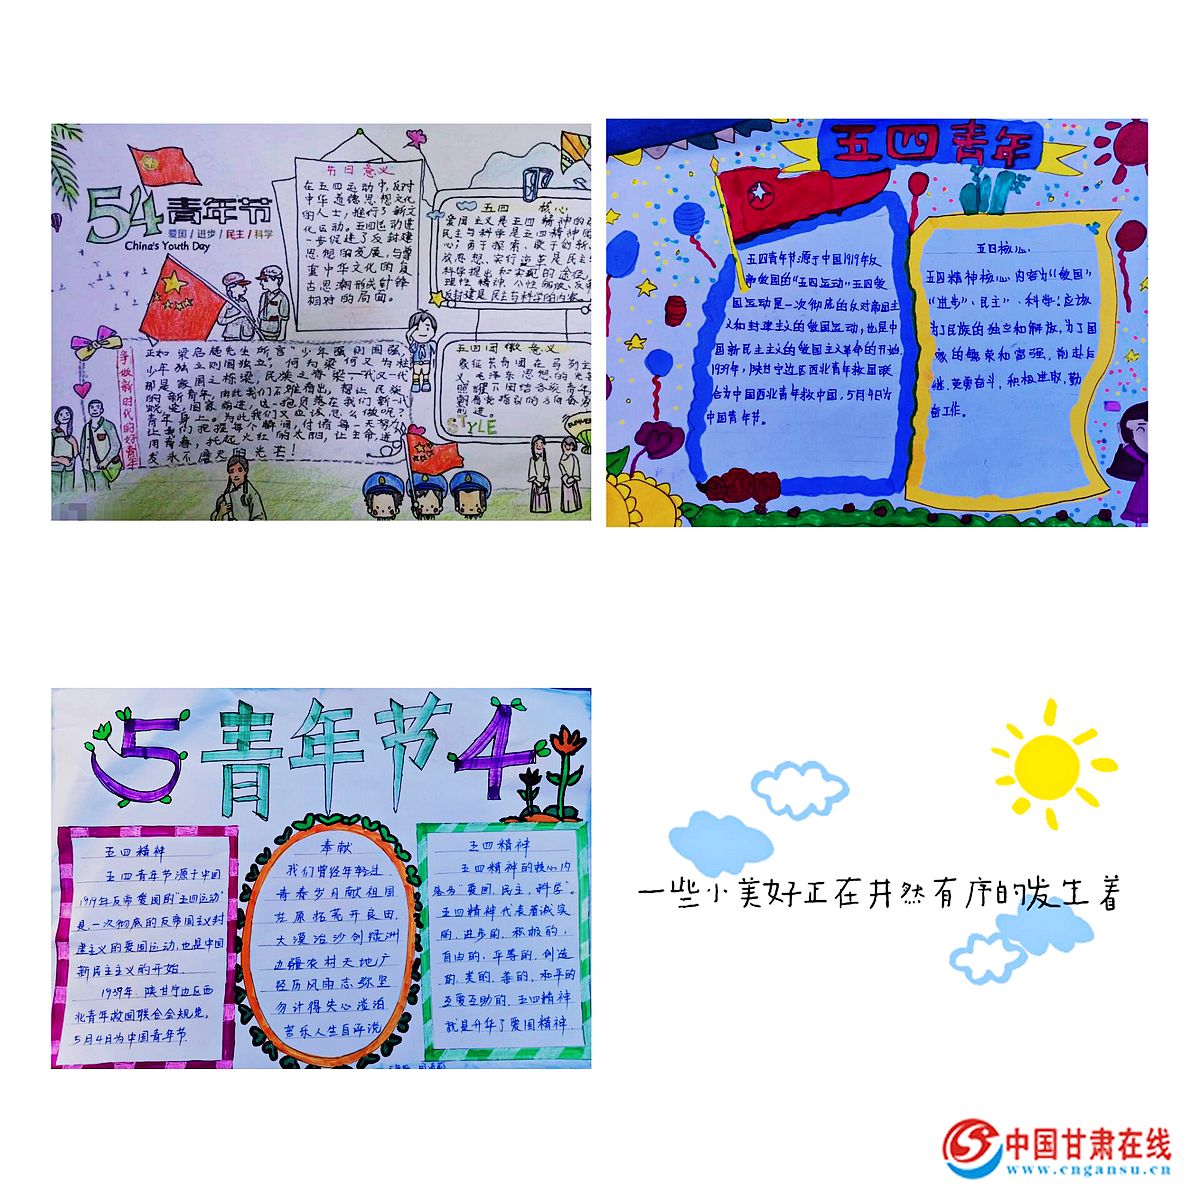 54青年节
爱国/进步/民主/科学
China's Youth Day
节日意义
在五四运动中,反对
中华道德思想文化
的人士,推行了新文
化运动。五四运动进
一步促进了反封建
思想的发展,与尊
重中华文化的复
古思潮形成针锋
相对的局面。
五四 核心
爱国主义是五四精神的
民主与科学是五四精神
心;勇于探索、敢于创新、
放思想、实行改革是民主
科学提出和实现的途径,
理性精神、个性解放、反
反封建是民主与科学的内容。
争做新时代的好青年
正如梁启超先生所言"少年强则国强,
少年独立则国独立,何为梁何又为柱
那是家国之栋梁,民族之脊梁一代又一代
的新青年,由此我们不难看出,想让民族
青年身上。为此我们又应该怎么做呢?
让我们把握每个瞬间,付诸每一天努力
用青春,托起火红的太阳,让生命进
发永不磨灭的光芒!
五四团徽意义
象征共青团在马列主
义、毛泽东思想的光
照耀下团结各族青年
朝着党指引的方向奋勇
前进。
STYLE
五四青年
五四青年节源于中国1919年反
帝爱国的"五四运动"五四爱
国运动是一次彻底的反对帝国主
义和封建主义的爱国运动,也是中
国新民主主义的爱国主义革命的开始.
1939年,陕甘宁边区西北青年救国联
合为中国西北青年救中国,5月4日为
中国青年节。
五四核心.
五四精神核心内容为"爱国"
"进步"、民主"、科学:应该
为了民族的独立和解放,为了国
家的繁荣和富强、前赴后
继、英勇奋斗、积极进取,勤
奋工作。
5青年节4
五四精神
五四青年节源于中国
1919年反帝爱国的"五四运动"
是一次彻底的反帝国主义封
建主义的爱国运动,也是中国
新民主主义的开始.
1939年,陕甘宁边区西
北青年救国联合会规定,
5月4日为中国青年节.
奉献
我们曾经年轻过
青春岁月献祖国
荒原拓荒开良田.
大漠治沙创绿洲
边疆农村天地广
经历风雨志弥坚
勿计得失心淡泊
苦乐人生自评说
五四精神
五四精神的核心内
容为"爱国、民主、科学"。
五四精神代表着诚实
的、进步的、积极的,
自由的,平等的、创造
的、美的、善的、和平的
互爱互助的、五四精神
就是升华了爱国精神.
一些小美好正在井然有序的发生着
中国甘肃在线
www.cngansu.cn